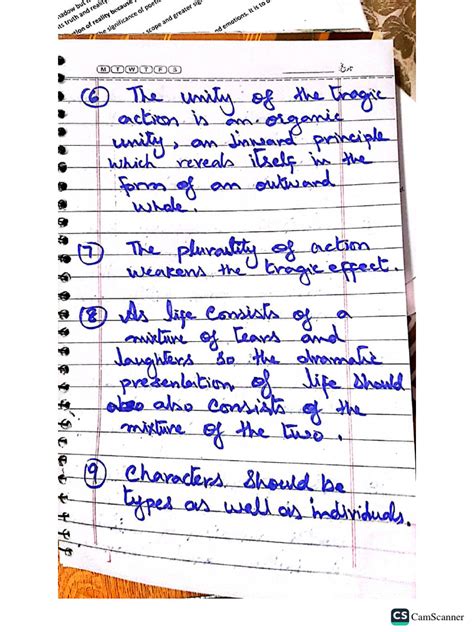 hadow but
ls truth and reality
ion of reality because
the significance of poetic
scope and greater sig
nd emotions. It is to
M T W T F S
⑥ The unity of the tragic
action is an organic
unity, an inward principle
which reveals itself in the
form of an outward
whole.
⑦ The plurality of action
weakens the tragic effect.
⑧ As life consists of a
mixture of tears and
laughters so the dramatic
presentation of life should
also consists of the
mixture of the two.
⑨ Characters should be
types as well as individuals.
CS CamScanner